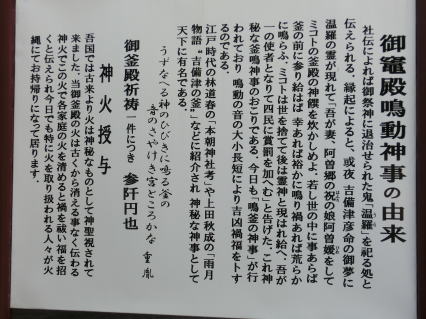 御竈殿鳴動神事の由来
社伝によれば御祭神に退治せられた鬼「温羅」を祀る処と
伝えられる。縁起によると、或夜、吉備津彦命の御夢に
温羅の霊が現れて「吾が妻、阿曽郷の祝の娘阿曽媛をして
ミコトの釜殿の神饌を炊かしめよ、若し世の中に事あらば
釜の前に参り給はば幸あれば裕かに鳴り禍あれば荒らか
に鳴らふ、ミコトは世を捨てて後は霊神と現はれ給へ、吾が
一の使者となりて四民に賞罰を加へむ」と告げた。これ神
秘な釜鳴神事のおこりである。今日も「鳴釜の神事」が行
われており、鳴動の音の大小長短により吉凶禍福をトす
るのである。
江戸時代の林道春の「本朝神社考」や上田秋成の「雨月
物語」"吉備津の釜"などに紹介され神秘な神事として
天下に有名である。
うずなへる神のひびきに鳴る釜の
音のさやけき宮ところかな 重胤
御釜殿祈祷 一件につき 参阡円也
神火授与
吾国では古来より火は神秘なものとして神聖視されて
来ました。当御釜殿の火は古くから消える事なく伝わる
神火でこの火で各家庭の火を清めると禍を祓い福を招
くと伝えられ今日でも特に火を取り扱われる人々が火
縄にてお持帰りになって居ります。